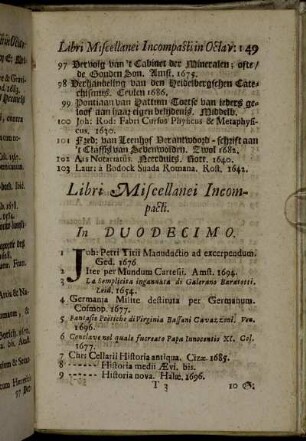 Libri Miscellanei Incompacti in Octav: 149
97 Vervolg van 't Cabinet der Mineralen; ofte/
de Gouden Son. Amst. 1675.
98 Verhandeling van den Heidelbergschen Cate-
chismus. Ceulen 1686.
99 Pontiaan van Hattem Toetse van ieders ge-
loof aan haar eigen belijdenis. Middelb.
100 Joh: Rodt: Fabri Cursus Physicus & Metaphysi-
cus. 1630.
101 Fred: van Leenhof Verantwoord-schrift aan
't Classis van Sevenwolden. Zwol 1682.
102 Ars Notariatus. Neerduits. Gott. 1640.
103 Laur: a Bodock Suada Romana. Rost. 1642.
Libri Miscellanei Incom-
pacti.
In DUODECIMO.
1 Joh: Petri Titii Manuductio ad excerpendum.
Ged. 1676.
2 Iter per Mundum Cartesii. Amst. 1694.
3 La Semplicita ingannata di Galerana Baratotti.
Leid. 1654.
4 Germania Milite destituta per Germanum.
Cosmop. 1677.
5 Fantasie Poëtiche di Virginia Bassani Cavazzoni. Ven.
1696.
6 Conclave nel quale fucreato Papa Innocentio XI. Col.
1677.
7 Chr: Cellarii Historia antiqua. Cizæ. 1685.
8 —— Historia medii Ævi. bis.
9 —— Historia nova. Halæ. 1696.
T 3 10 G: